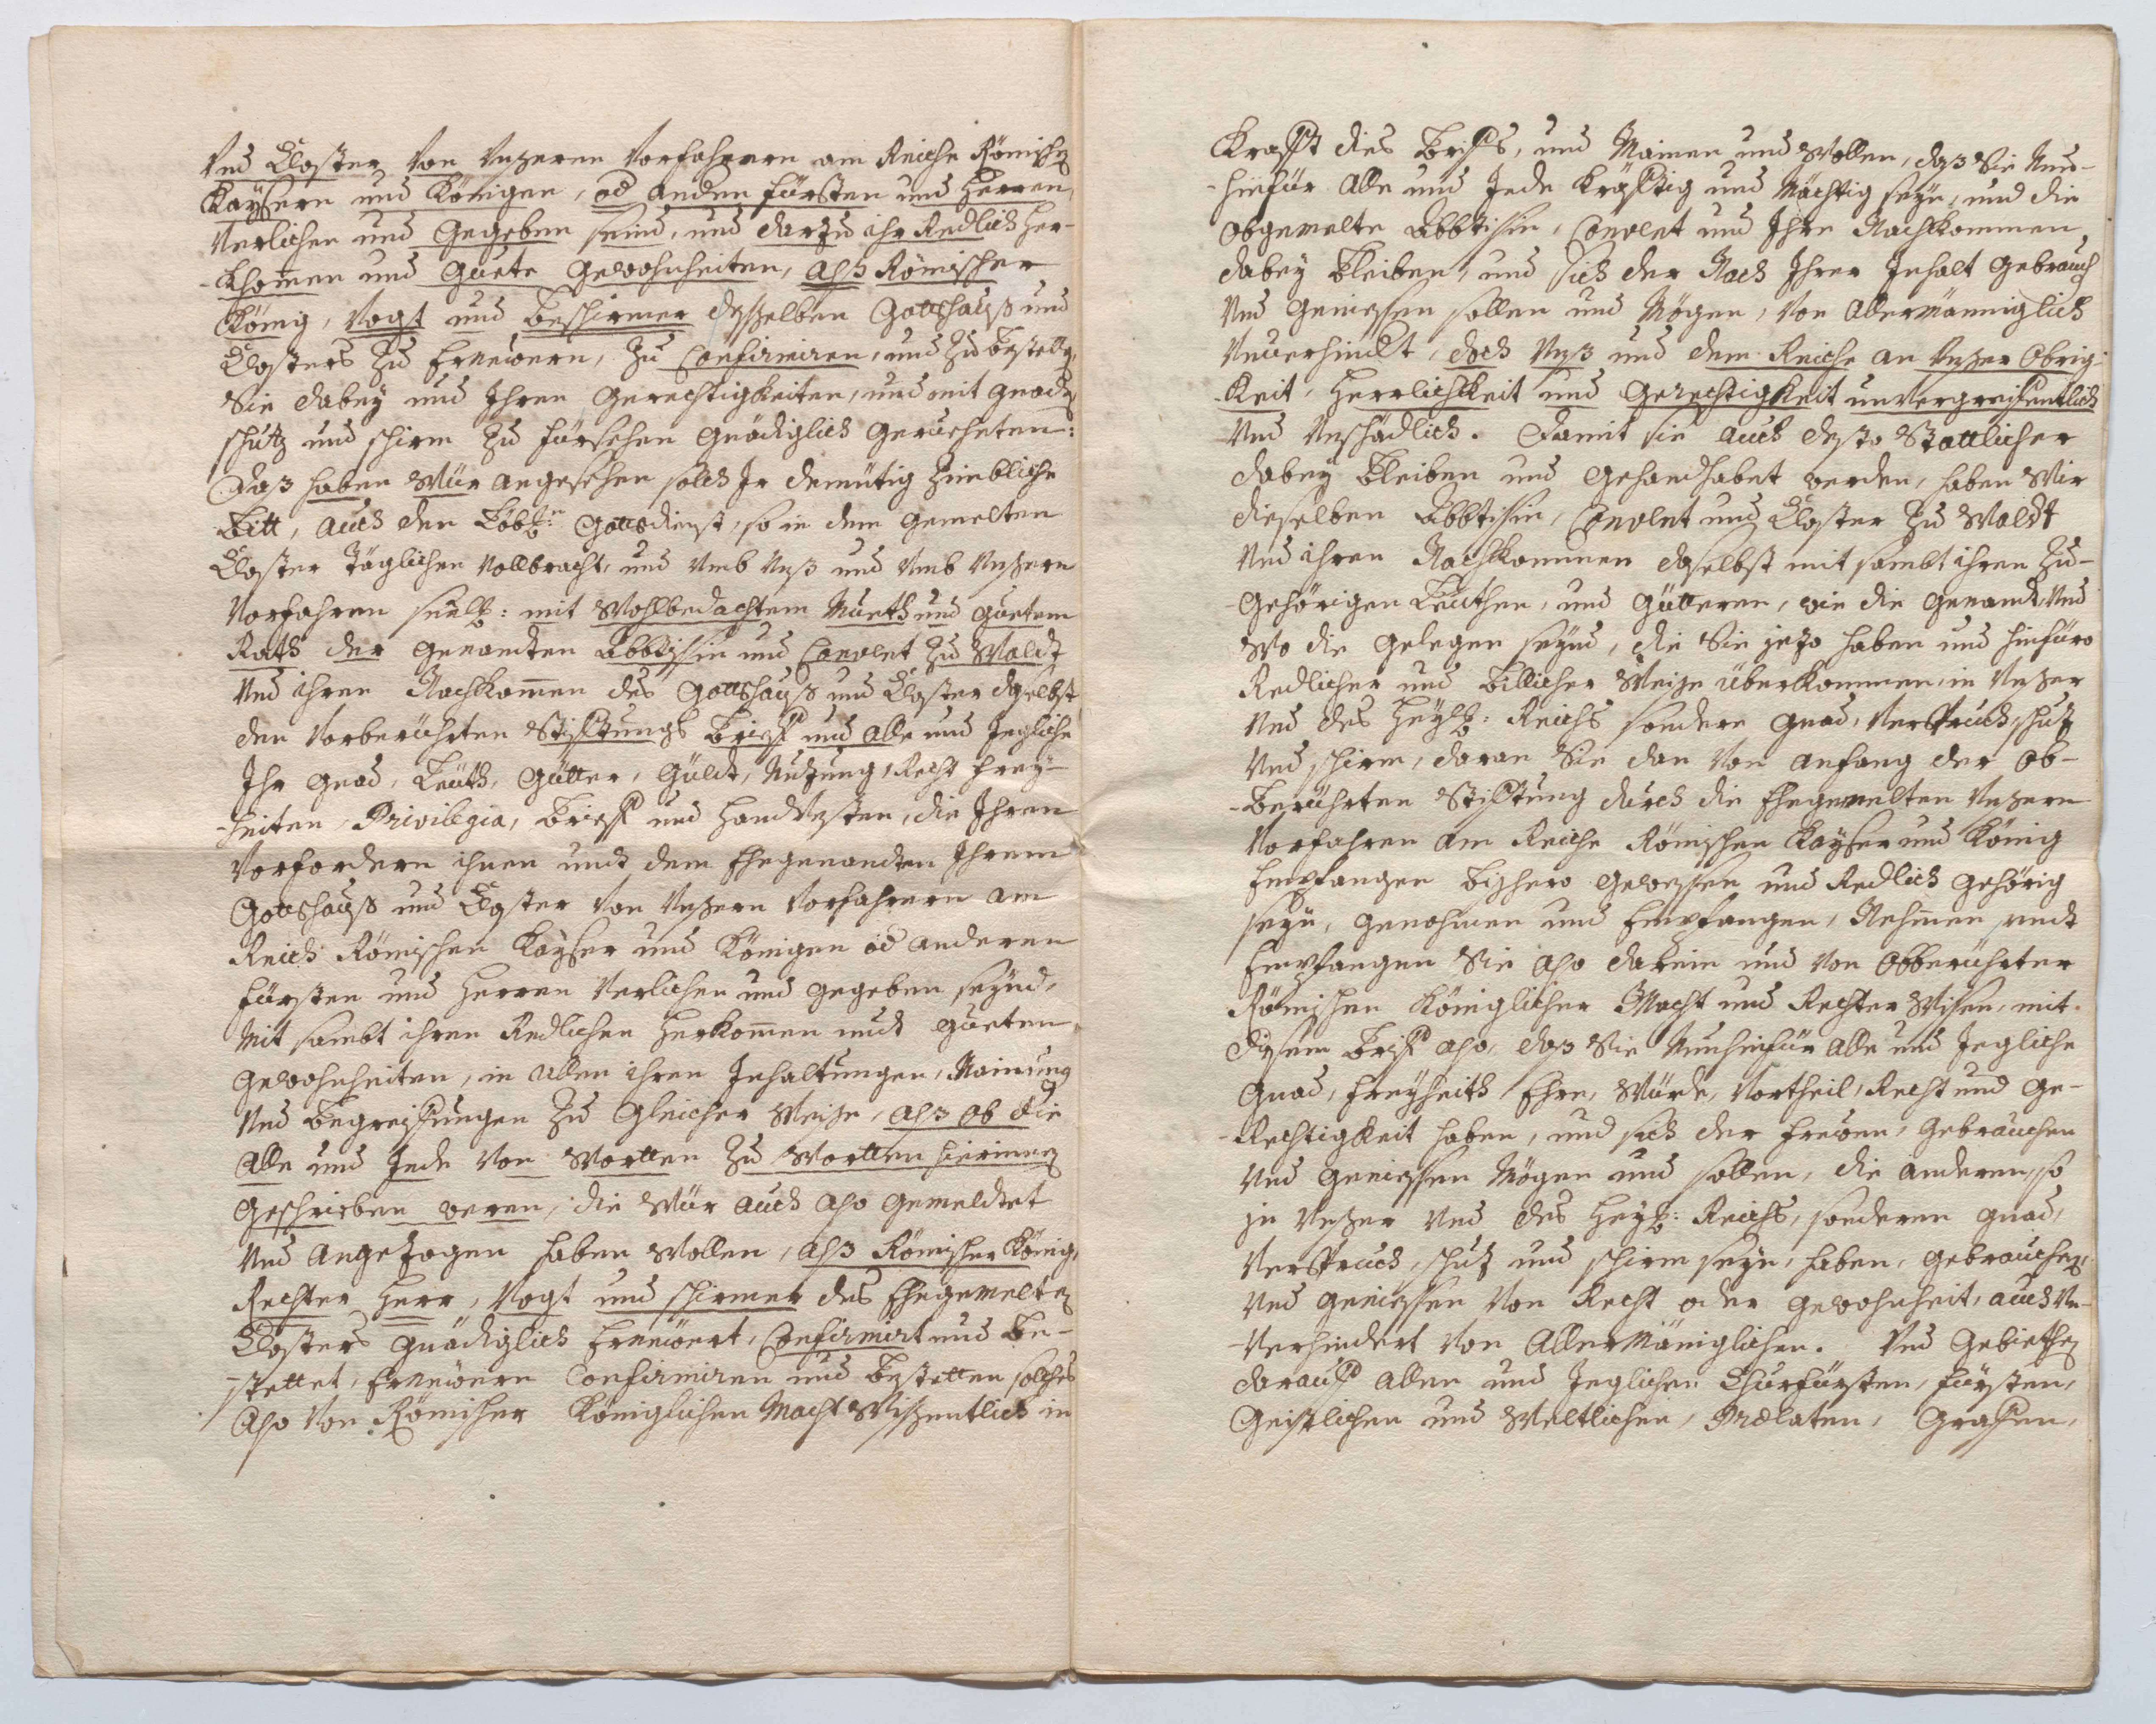 Vnd Closter von Vnseren Vorfahrern am Reiche Römischen
Kaysern und Königen, od anden Fürsten und Herren,
Verlichen und Gegeben seind, und darzu ihr Redlich Her-
-khom̄en und Guete Gewohnheiten, alß Römischer
König, Vogt und Beschirmer desselben Gottshauß und
Closters zu Erneüern, zu Confirmiren, und zu Bestetten,
Sie dabey und Ihren Gerechtigkeiten, und mit Gnaden
schutz und schirm zu fürsehen Gnädiglich Gerucheten:
Daß haben Wür angesehen solch Ir demütig zimbliche
Bitt, auch den Löbl: Gottsdienst, so in dem Gemelten
Closter Täglichen Vollbracht, und Vmb Vnß und Vmb Vnsern
Vorfahren seell: mit Wohlbedachtem Mueth und Guetem
Rath der Genandten Abbtissin und Convet zu Waldt
Vnd ihren Nachkom̄en des Gottshauß und Closter daselbst
den Vorberührten Stifftungs Brieff und alle und Jegliche
Ihr Gnad, Leüth, Gütter, Güldt, Nutzung, Recht frey-
-heiten, Privilegia, Brieff und Handtvesten, die Ihren
Vorfordern ihnen undt dem Ehegenandten Ihrem
Gottshauß und Closter von Vnsern Vorfahrern am
Reich Römischen Kayser und Königen od anderen
Fürsten und Herren Verlichen und gegeben seynd,
Mit sambt ihren Redlichen Herkom̄en undt gueten
Gewohnheiten, in allen ihren Inhaltungen, Mainung
Vnd Begreiffungen zu gleicher Weise, alß ob die
Alle und Jede von Wortten zu Wortten hierinnen
Geschrieben weren, die Wür auch also Gemeldtet
Vnd angezogen haben wollen, alß Römischer König,
Rechter Herr, Vogt und schirmer des Ehegemelten
Closters gnädiglich Erneüert, Confirmirt und Be-
-stettet, Erneüern Confirmiren und Bestetten solches
Also Von Römischer Königlichen Macht Wissentlich in
Krafft dies Briffs, und Mainen und Wollen, daß Sie Nun-
-hinfür Alle und Jede Kräfftig und Mächtig seyn, und die
Obgemelte Abbtissin, Convet und Ihre Nachkommen,
dabey Bleiben, und sich der Nach Ihrer Inhalt Gebrauch
Vnd Geniessen sollen und Mögen, Von Allermänniglich
Vnverhindt, doch Vnß und dem Reiche an Vnser Obrig-
-keit, Herrlichkeit und Gerechtigkeit unvergreiffentlich
Vnd Vnschädlich. Damit sie auch desto Stattlicher
dabey Bleiben und Gehandhabet werden, haben Wir
dieselben Abbtissin, Convet und Closter zu Waldt
Vnd ihren Nachkommen daselbst mit sambt ihren Zu-
-Gehörigen Leüthen, und Gütteren, wie die Genandt, Vnd
Wo die Gelegen seynd, die Sie jezo haben und hinfüro
Redlicher und Billicher Weise überkommen, in Vnser
Vnd des Heyl: Reichs sondere Gnad, Verspruch, schutz
Vnd schirm, daran Sie dan von anfang der Ob-
-Berührten Stifftung durch die Ehegemelten Vnsern
Vorfahren am Reiche Römischen Kayser und König
Empfangen Bißhero Gewessen und Redlich Gehörig
seyn, Genohmen und Empfangen, Nehmen undt
Empfangen Sie also darein und von Obberührter
Römischen Königlicher Macht und Rechter Wissen, mit
disem Briff also, daß Sie Nunhinfür Alle und Jegliche
Gnad, Freyheith Ehre, Würde, Vortheil, Recht und Ge-
-Rechtigkeit haben, und sich der Freüen, Gebrauchen
Vnd Geniessen Mögen und sollen, die anderen, so
in Vnser Vnd des Heyl: Reichs, sonderen Gnad,
Verspruch, schutz und schirm seyn, haben, Gebrauchen,
Vnd Geniessen von Recht oder Gewohnheit, auch Vn-
-Verhindert von Allermäniglichen. Vnd Gebiethen
darauff allen und Jeglichen Churfürsten, Fürsten,
Geistlichen und Weltlichen, Prælaten, Graffen,